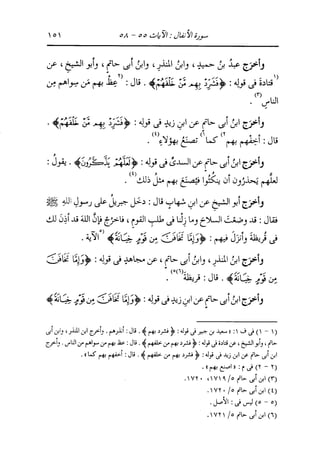 سورة الأنفال : الآيات ٥٥ - ٥٨
١٥١
وأخرج عبدُ بنُ حميدٍ ، وابنُ المنذرِ ، وابنُ أبى حاتمٍ ، وأبو الشيخِ ، عن
(١ قتادةَ فى قولِه : ﴿فَشَرِّدْ بِهِم مَّنْ خَلْفَهُمْ﴾ . قال : (٢ عِظْ بهم مَن سِواهم مِن
الناسِ (٣) .
وأخرج ابنُ أبى حاتمٍ عن ابنِ زيدٍ فى قولِه : ﴿فَشَرِّدْ بِهِم مَّنْ خَلْفَهُمْ﴾ .
قال : أخِفْهم بهم ٢) كما ١) تصنَعُ بهؤلاءِ (٤) .
وأخرج ابنُ أبى حاتمٍ عن السدىِّ فى قولِه : ﴿لَعَلَّهُمْ يَذَّكَّرُونَ﴾ . يقولُ :
لعلَّهم يَحذَرون أن يَنكُثوا فيُصنَعَ بهم مثلُ ذلك (٤) .
وأخرج أبو الشيخِ عن ابنِ شهابٍ قال : دخَل جبريلُ على رسولِ اللهِ ﷺ
فقال : قد وضَعتَ السلاحَ وما زِلْنا فى طلبِ القومِ ، فاخرُجْ فإنَّ اللهَ قد أذِن لك
فى قُريظةَ وأنزَل فيهم : ﴿وَإِمَّا تَخَافَنَّ مِن قَوْمٍ خِيَانَةً﴾ الآية .
وأخرج ابنُ المنذرِ ، وابنُ أبى حاتمٍ ، عن مجاهدٍ فى قولِه : ﴿وَإِمَّا تَخَافَنَّ
مِن قَوْمٍ خِيَانَةً﴾ . قال : قريظةُ (٥)(٦) .
وأخرج ابنُ أبى حاتمٍ عن ابنِ زيدٍ فى قولِه : ﴿وَإِمَّا تَخَافَنَّ مِن قَوْمٍ خِيَانَةً﴾
(١ - ١) فى ف ١: « سعيد بن جبير فى قوله : ﴿ فشرد بهم ﴾ . قال : أنذرهم . وأخرج ابن المنذر ، وابن أبى
حاتم ، وأبو الشيخ ، عن قتادة فى قوله : ﴿ فشرد بهم من خلفهم ﴾ . قال : عظ بهم من سواهم من الناس . وأخرج
ابن أبى حاتم عن ابن زيد فى قوله : ﴿ فشرد بهم من خلفهم ﴾ . قال : أخفهم بهم كما » .
(٢ - ٢) فى م : « اصنع بهم » .
(٣) ابن أبى حاتم ٥/ ١٧١٩، ١٧٢٠ .
(٤) ابن أبى حاتم ٥/ ١٧٢٠ .
(٥ - ٥) ليس فى : الأصل .
(٦) ابن أبى حاتم ٥/ ١٧٢١ .